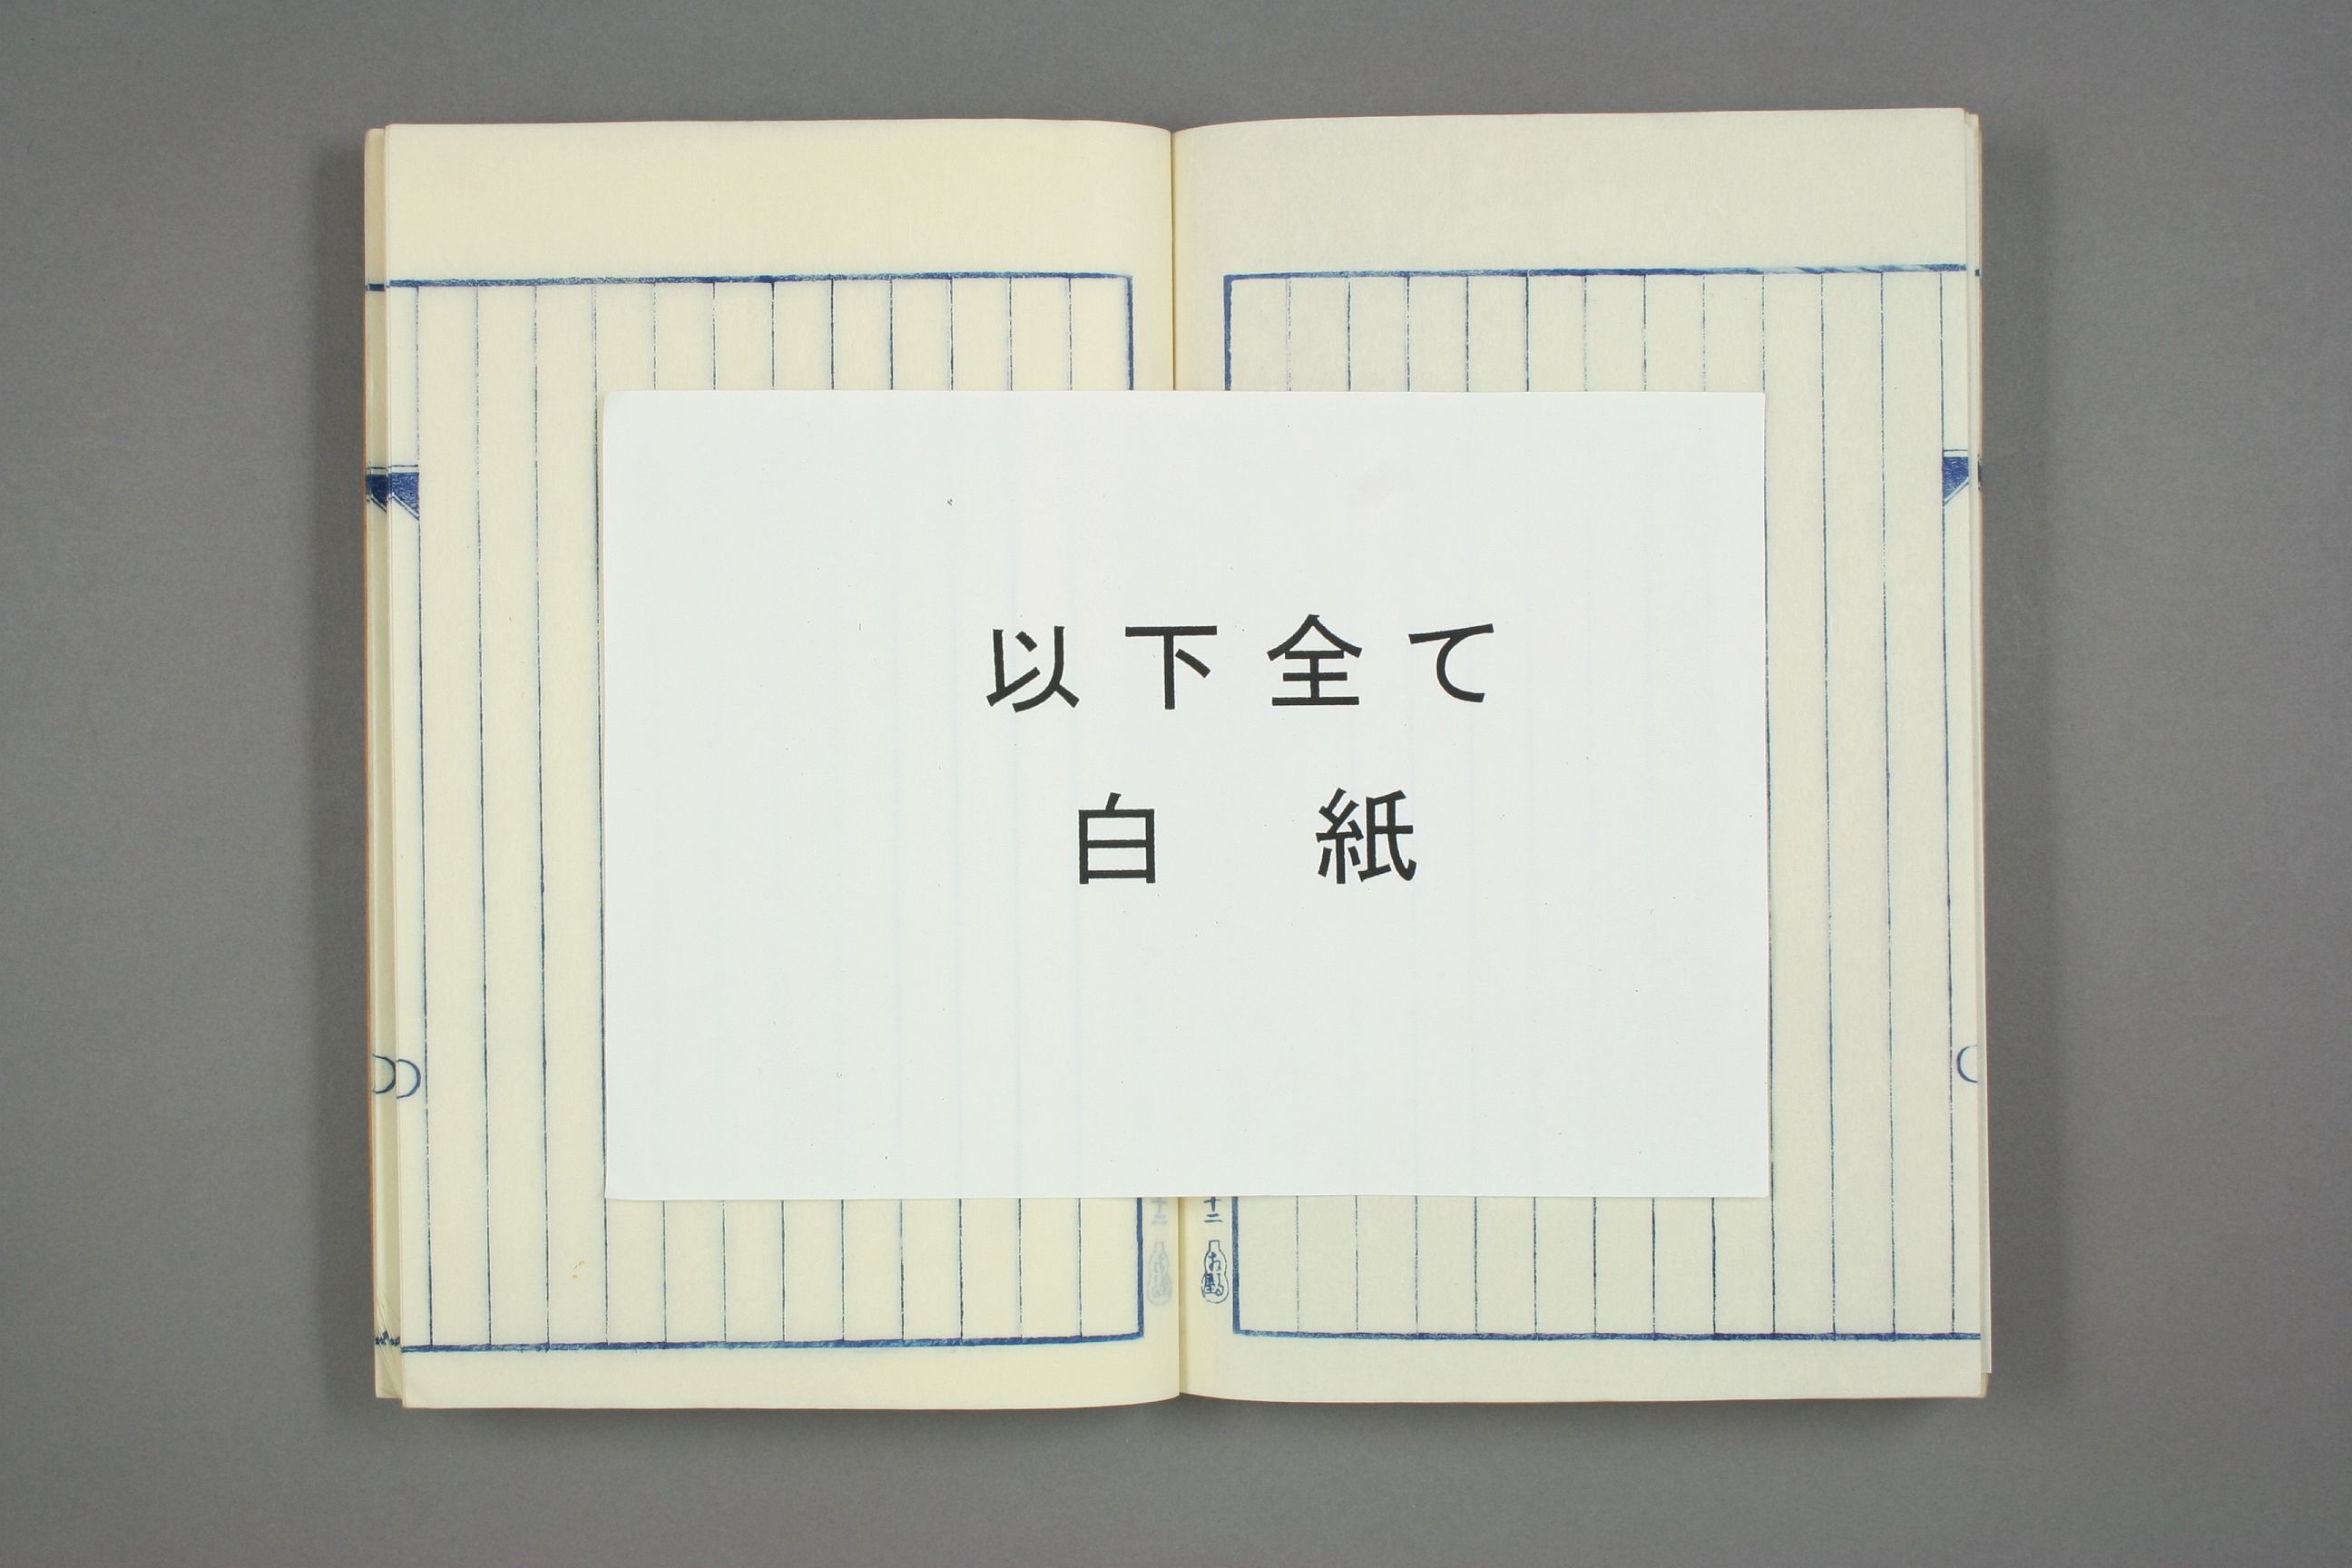 以下全て
白紙
十二